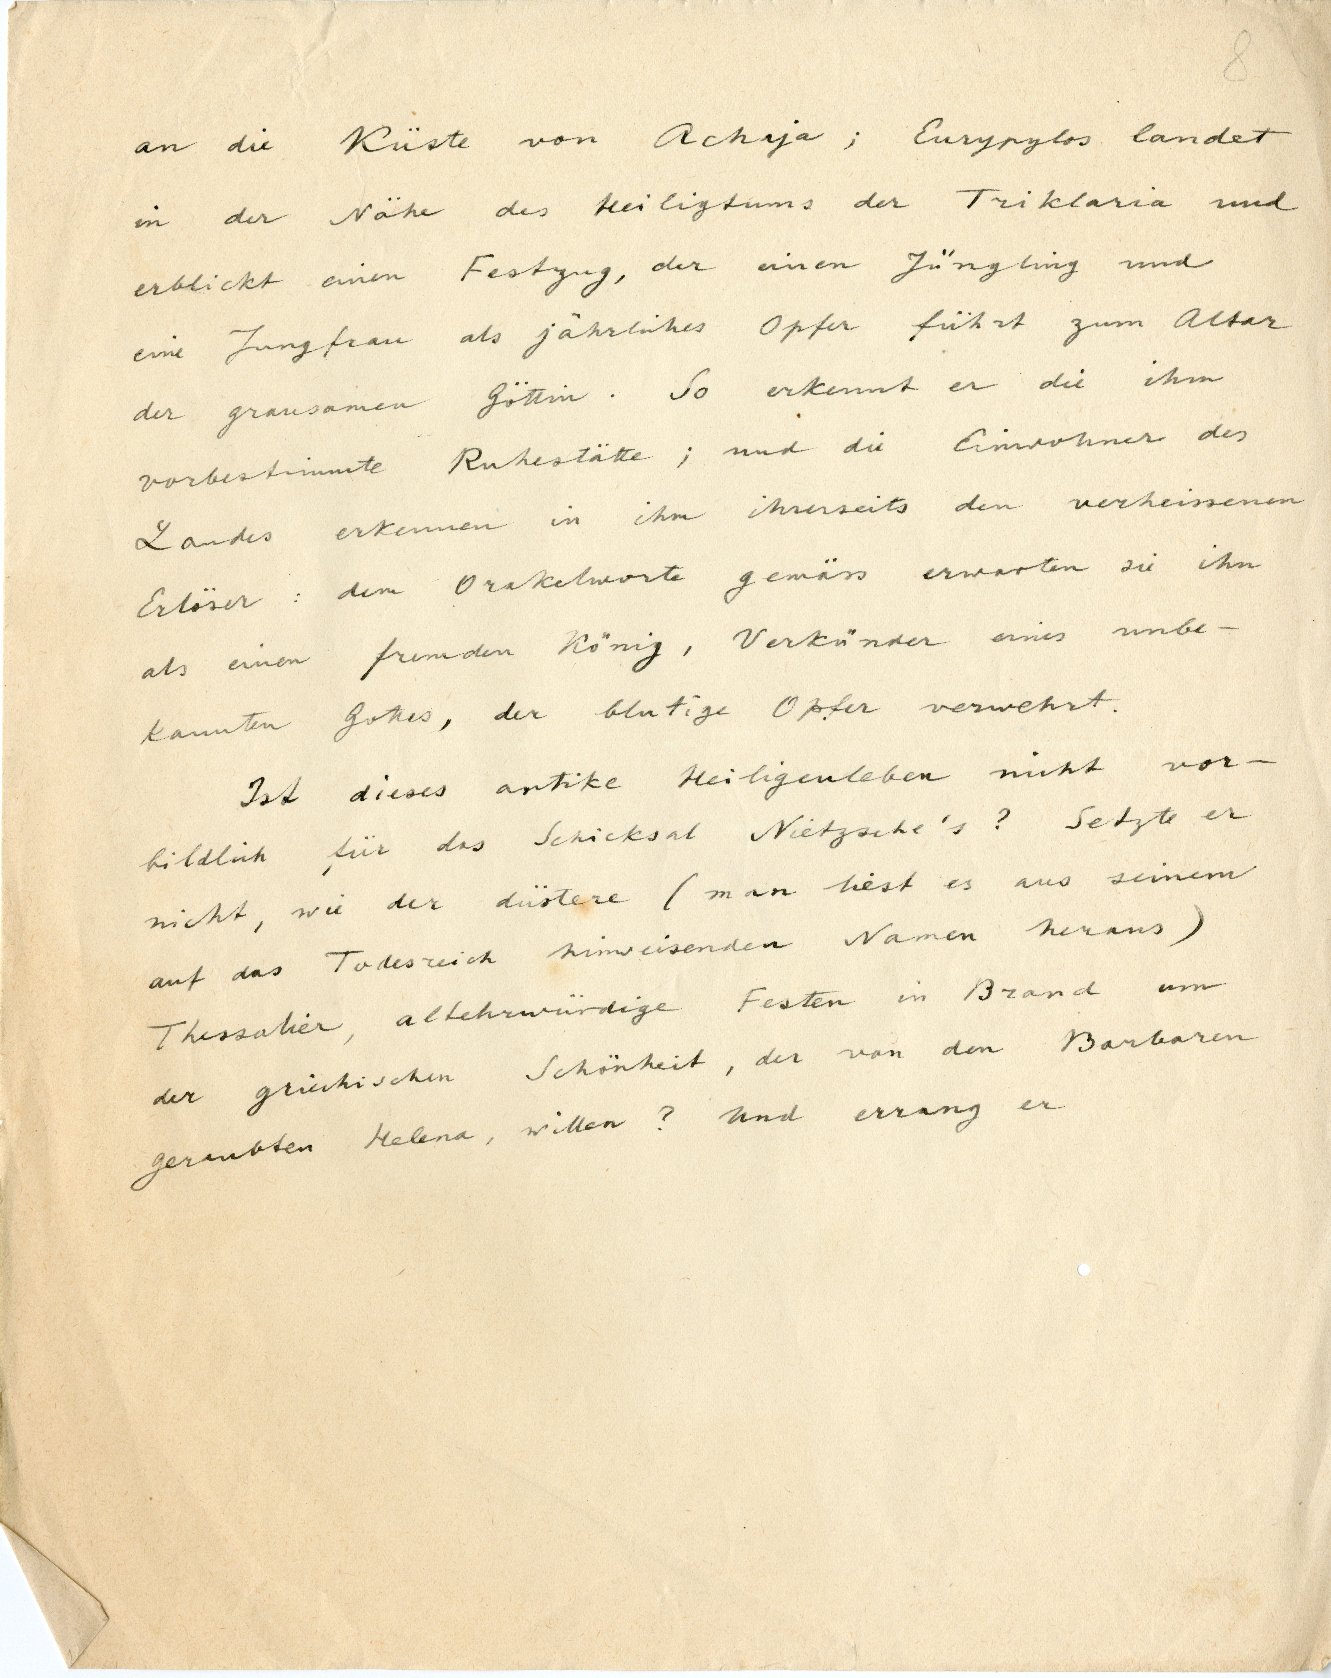 8
an die Küste von Achaja ; Eurypylos landet
in der Nähe des Heiligtums der Triklaria und
erblickt einen Festzug, der einen Jüngling und
eine Jungfrau als jährliches Opfer führt zum Altar
der grausamen Göttin. So erkennt er die ihm
vorbestimmte Ruhestätte ; und die Einwohner des
Landes erkennen in ihm ihrerseits den verheissenen
Erlöser : dem Orakelworte gemäss erwarten sie ihn
als einen fremden König, Verkünder eines unbe-
kannten Gottes, der blutige Opfer verwehrt.
Ist dieses antike Heiligenleben nicht vor-
bildlich für das Schicksal Nietzsche's ? Setzte er
nicht, wie der düstere ( man liest es aus seinem
auf das Todesreich hinweisenden Namen heraus )
Thessalier, altehrwürdige Festen in Brand um
der griechischen Schönheit, der von den Barbaren
geraubten Helena, willen ? Und errang er